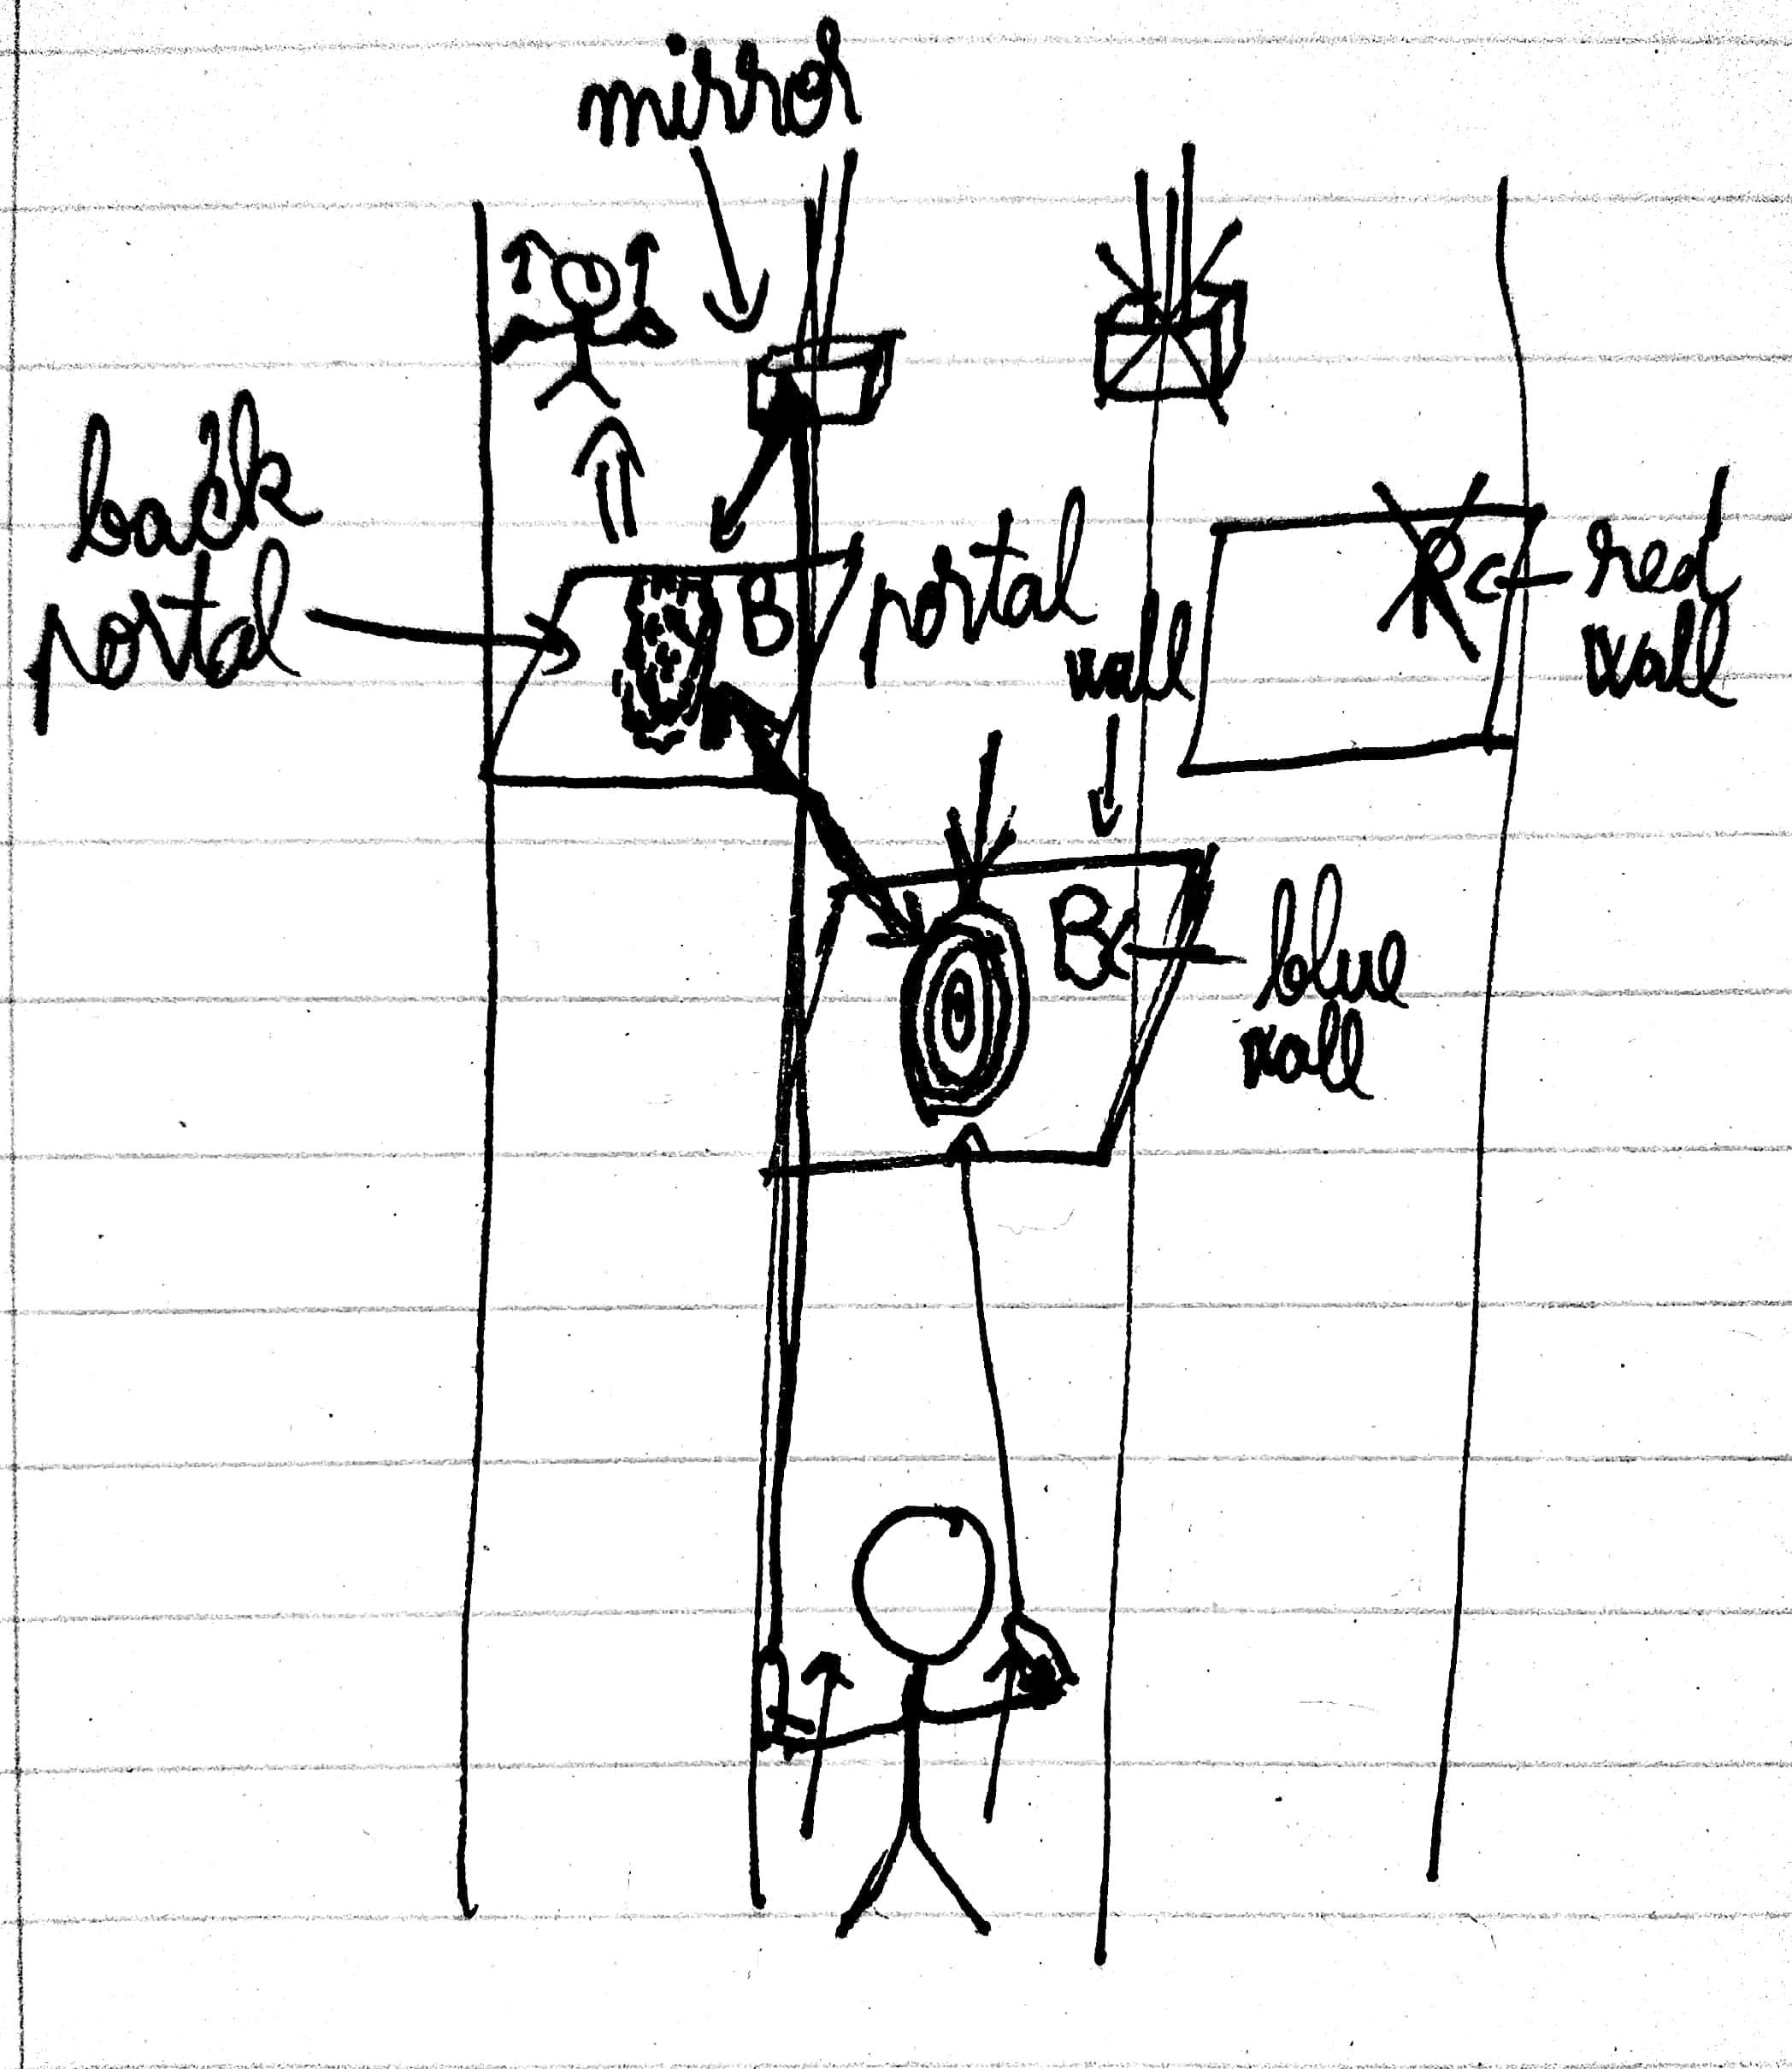 mirror
back
portal
B
portal
wall
R
red
wall
B
blue
wall